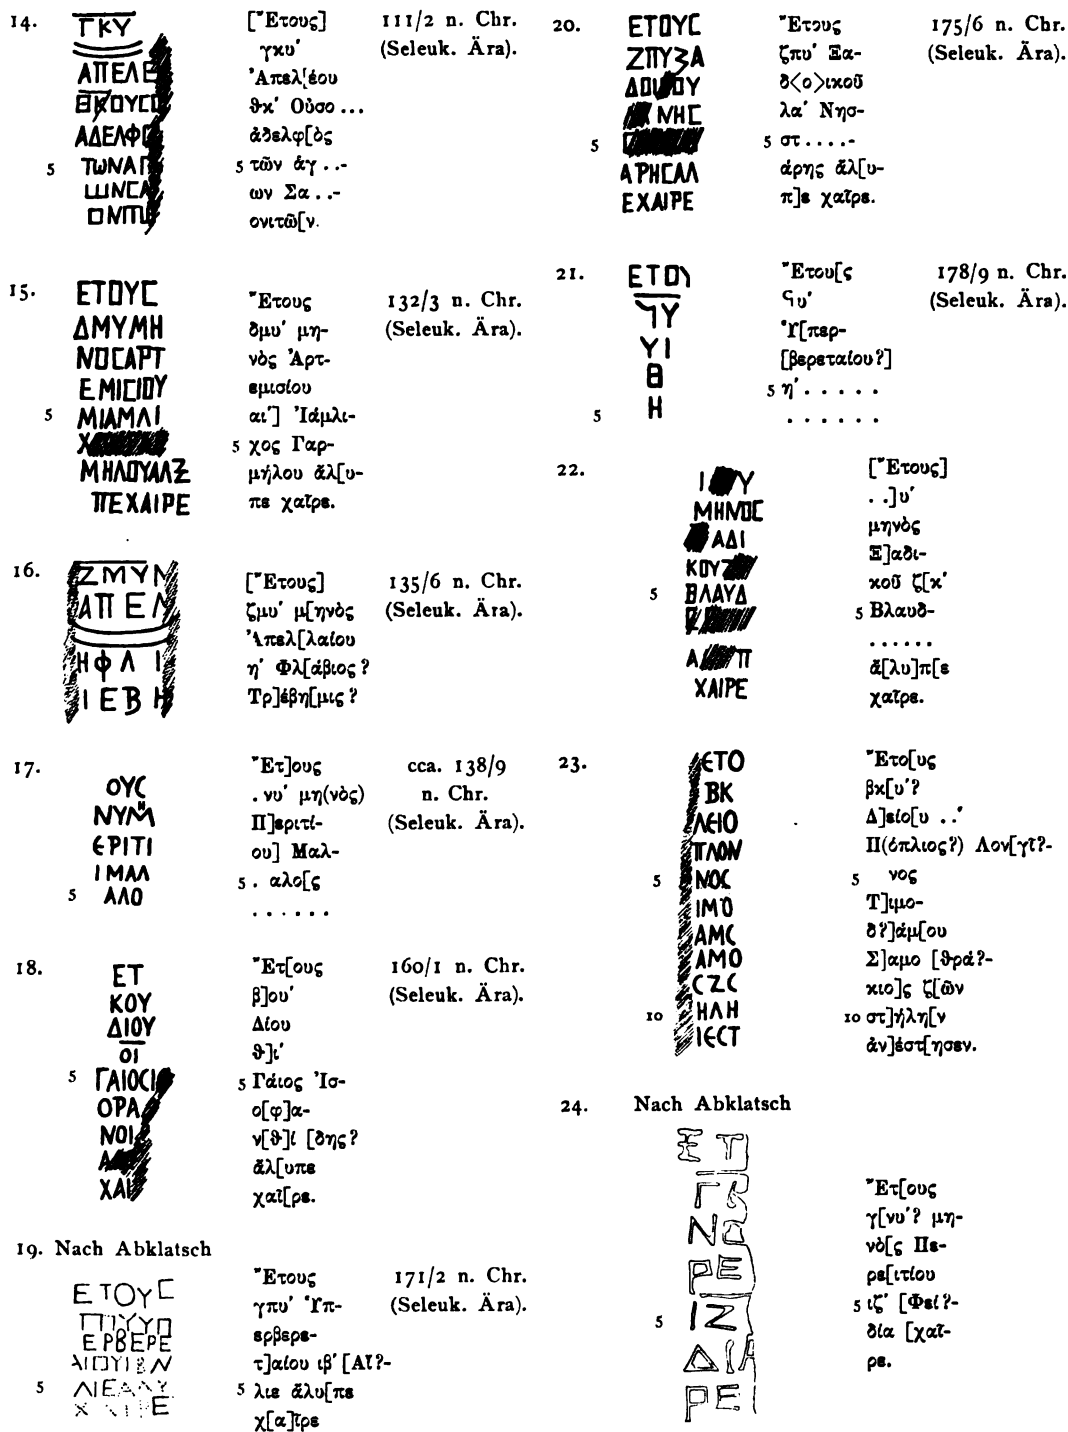 14.
ΓΚΥ
ΑΠΕΛΕ
ΘΚΟΥСΟ
ΑΔΕΛΦΟ
5 ΤΩΝΑΓ
ΩΝСΑ
ΟΝΙΤΩ
[Ἔτους]
γκυʹ
Ἀπελ[έου
θκʹ Οὐσο ...
ἀδελφ[ὸς
5 τῶν ἁγ ..-
ων Σα ..-
ονιτῶ[ν.
111/2 n. Chr.
(Seleuk. Ära).
15.
ΕΤΟΥС
ΔΜΥΜΗ
ΝΟСΑΡΤ
ΕΜΙСΙΟΥ
5 ΜΙΑΜΛΙ
Χ
ΜΗΛΟΥΑΛΞ
ΠΕΧΑΙΡΕ
Ἔτους
δμυʹ μη-
νὸς Ἀρτ-
εμισίου
αιʹ] Ἰάμλι-
5 χος Γαρ-
μήλου ἄλ[υ-
πε χαῖρε.
132/3 n. Chr.
(Seleuk. Ära).
16.
ΖΜΥΜ
ΑΠΕΛ
ΗΦΛΙ
ΙΕΒΗ
[Ἔτους]
ζμυʹ μ[ηνὸς
Ἀπελ[λαίου
ηʹ Φλ[άβιος?
Τρ]έβη[μις?
135/6 n. Chr.
(Seleuk. Ära).
17.
ΟΥС
ΝΥΜΗ
ЄΡΙΤΙ
ΙΜΑΛ
5 ΑΛΟ
Ἔτ]ους
.νυʹ μη(νὸς)
Π]εριτί-
ου] Μαλ-
5 . αλο[ς
......
cca. 138/9
n. Chr.
(Seleuk. Ära).
18.
ΕΤ
ΚΟΥ
ΔΙΟΥ
ΟΙ
5 ΓΑΙΟСΙ
ΟΡΑ
ΝΟΙ
ΧΑΙ
Ἔτ[ους
β]ουʹ
Δίου
θ]ιʹ
5 Γάιος Ἰσ-
ο[φ]α-
ν[θ]ί [δης?
ἄλ[υπε
χαῖ[ρε.
160/1 n. Chr.
(Seleuk. Ära).
19. Nach Abklatsch
ΕΤΟΥС
ΓΠΥΥΠ
ΕΡΒΕΡΕ
ΑΙΟΥΙΒΝ
5 ΛΙΕΑΛΥ
Χ ΙΡΕ
Ἔτους
γπυʹ Ὑπ-
ερβερε-
τ]αίου ιβʹ [Αἴ?-
5 λιε ἄλυ[πε
χ[α]ῖρε
171/2 n. Chr.
(Seleuk. Ära).
20.
ΕΤΟΥС
ΖΠΥΞΑ
ΔΟΙΚΟΥ
ΝΗС
5
ΑΡΗСΑΛ
ΕΧΑΙΡΕ
Ἔτους
ζπυʹ Ξα-
δ<ο>ικοῦ
λαʹ Νησ-
5 στ ....-
άρης ἄλ[υ-
π]ε χαῖρε.
175/6 n. Chr.
(Seleuk. Ära).
21.
ΕΤΟΥ
ϤΥ
ΥΙ
Θ
5 Η
Ἔτου[ς
Ϥυʹ
Ὑ[περ-
[βερεταίου?]
5 ηʹ .....
......
178/9 n. Chr.
(Seleuk. Ära).
22.
Ι Υ
ΜΗΝΟС
ΑΔΙ
ΚΟΥΖ
5 ΒΛΑΥΔ
Α Π
ΧΑΙΡΕ
[Ἔτους]
..]υʹ
μηνὸς
Ξ]αδι-
κοῦ ζ[κʹ
5 Βλαυδ-
......
ἄ[λυ]π[ε
χαῖρε.
23.
ЄΤΟ
ΒΚ
ΛЄΙΟ
ΠΛΟΝ
5 ΝΟС
ΙΜΟ
ΑΜС
ΑΜΟ
СΖС
10 ΗΛΗ
ΙЄСΤ
Ἔτο[υς
βκ[υʹ?
Δ]είο[υ ..ʹ
Π(όπλιος?) Λον[γῖ?-
5 νος
Τ]ιμο-
δ?]άμ[ου
Σ]αμο [θρά?-
κιο]ς ζ[ῶν
10 στ]ήλη[ν
ἀν]έστ[ησεν.
24. Nach Abklatsch
ΞΤ
ΓΒ
ΝΟ
ΡΕ
5 ΙΖ
ΔΙΑ
ΡΕ
Ἔτ[ους
γ[νυʹ? μη-
νὸ[ς Πε-
ρε[ιτίου
5 ιζʹ [Φει?-
δία [χαῖ-
ρε.